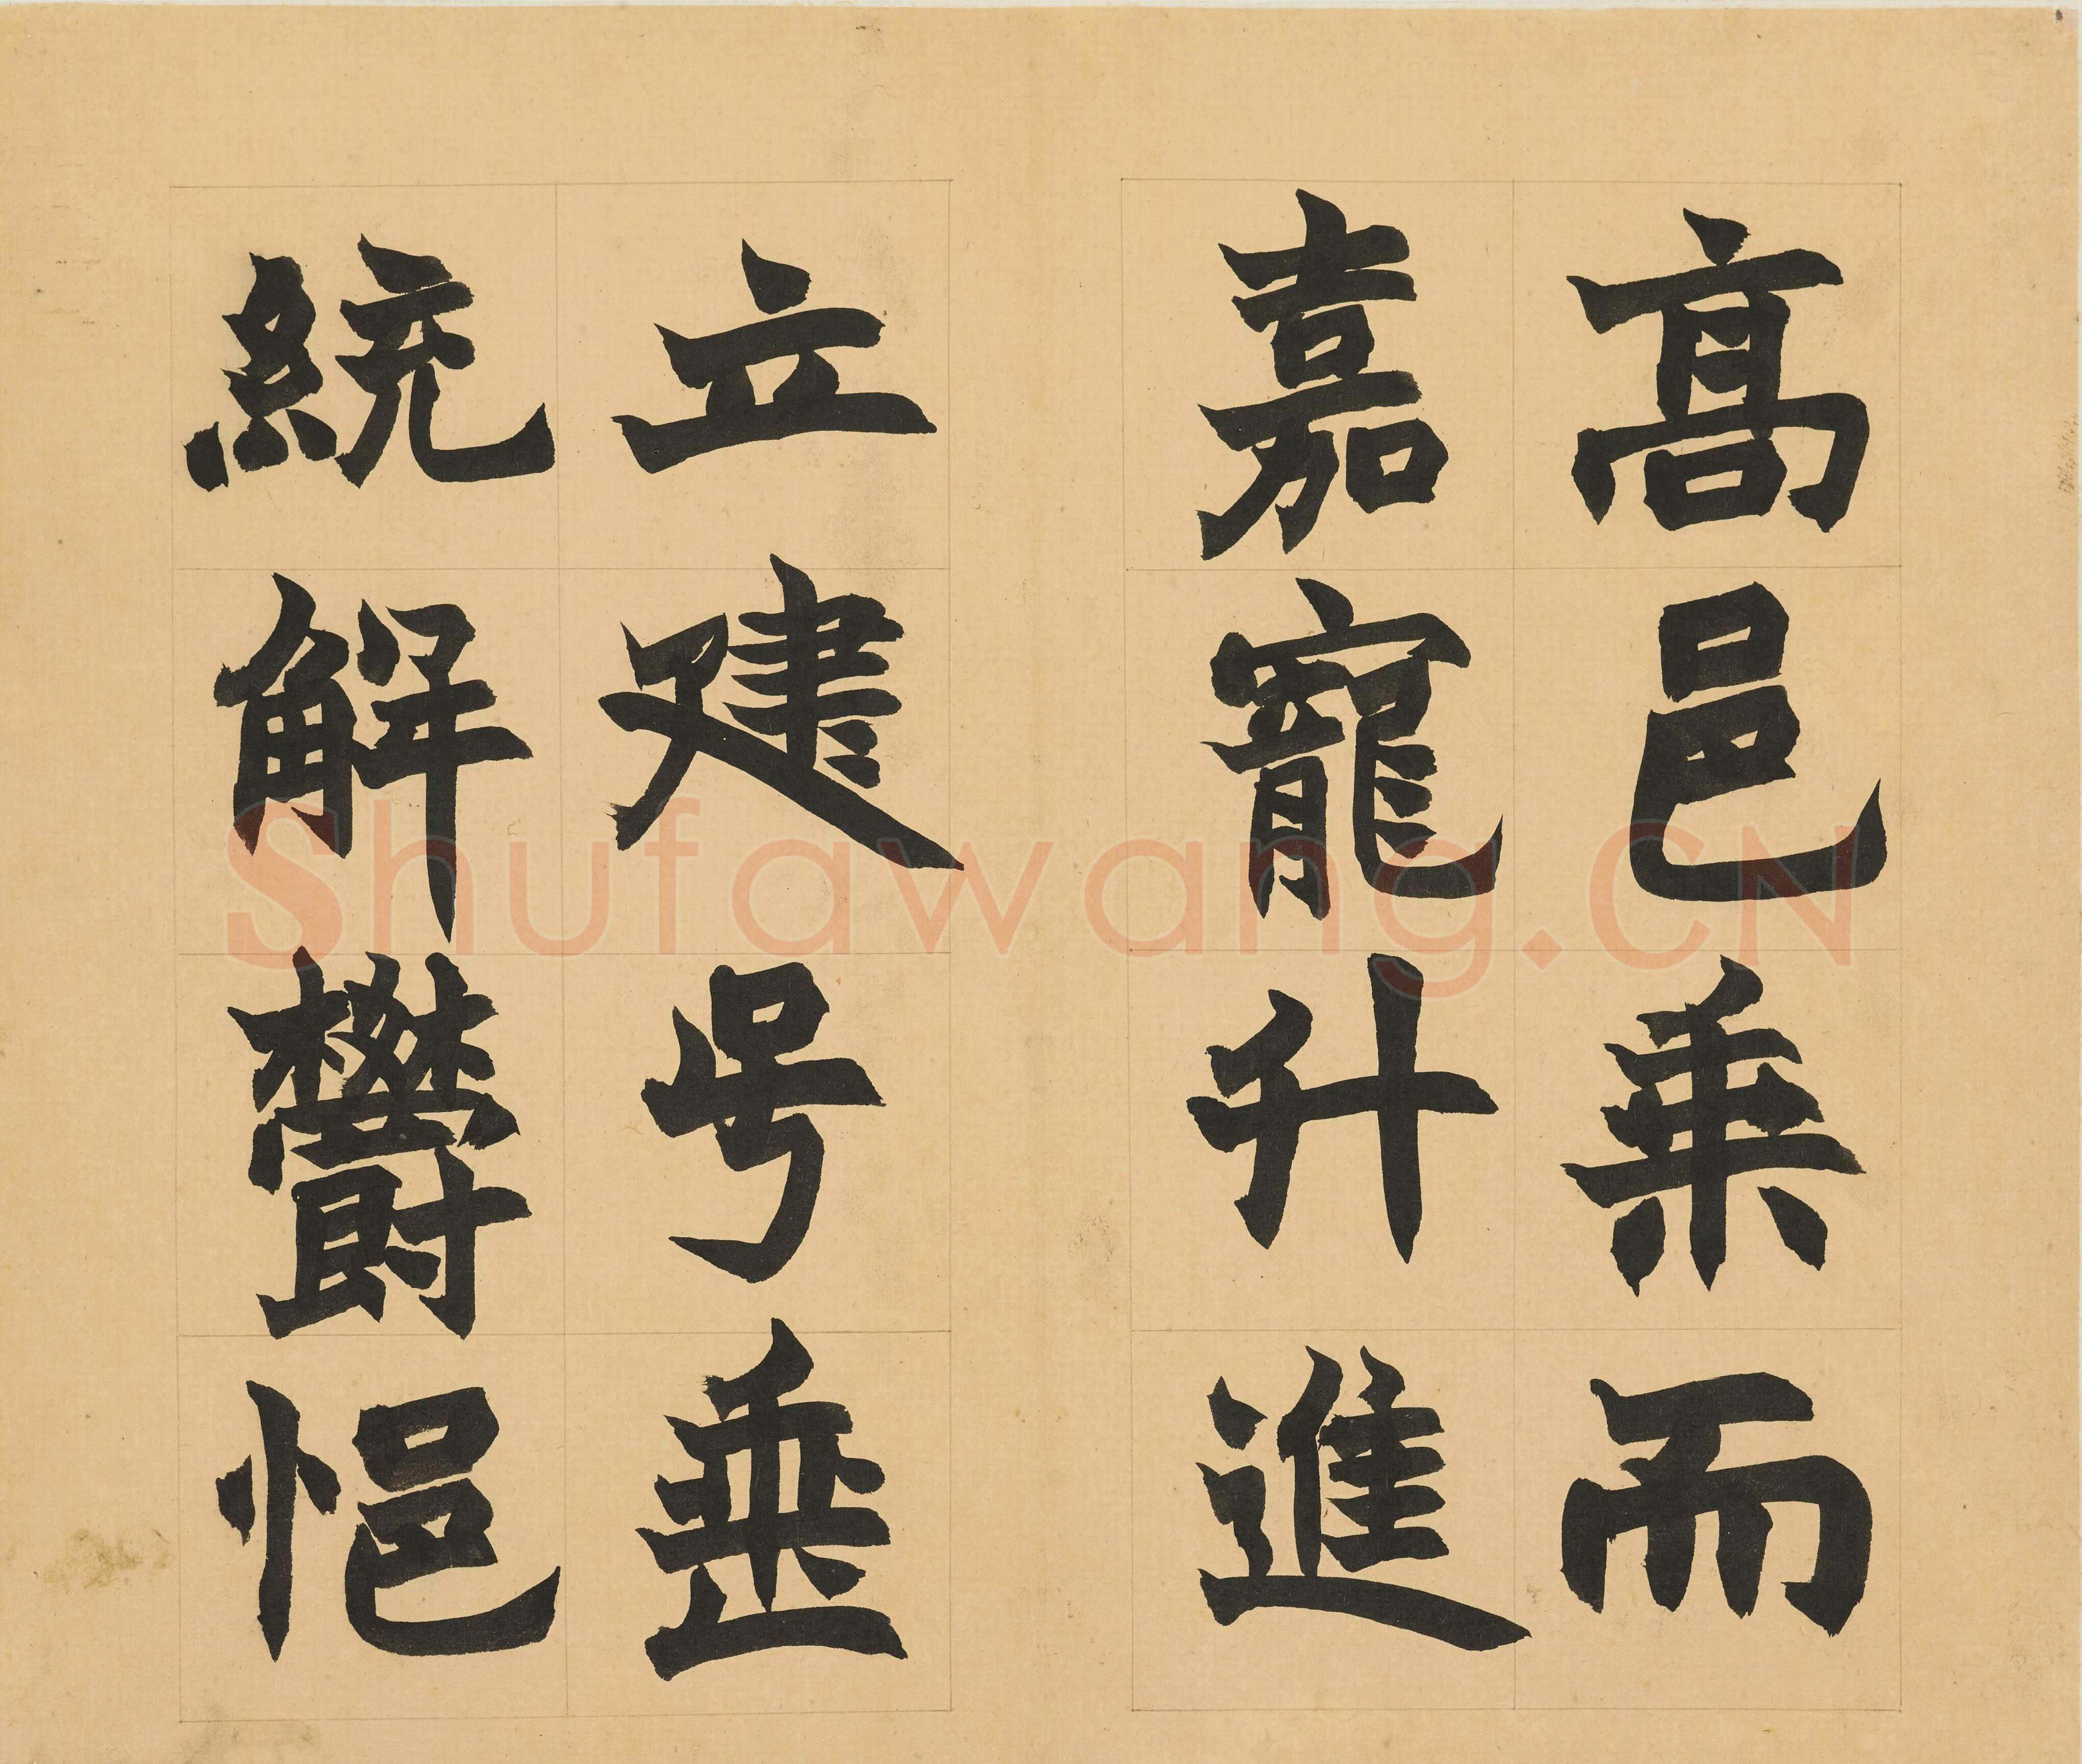 髙邑乗而
嘉寵升進
立建号垂
統解欎悒
Shufawang.CN